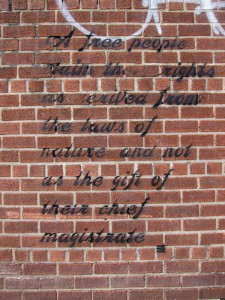 A free people
laim the rights
as erived from
the laws of
nature and not
as the gift of
their chief
magistrate